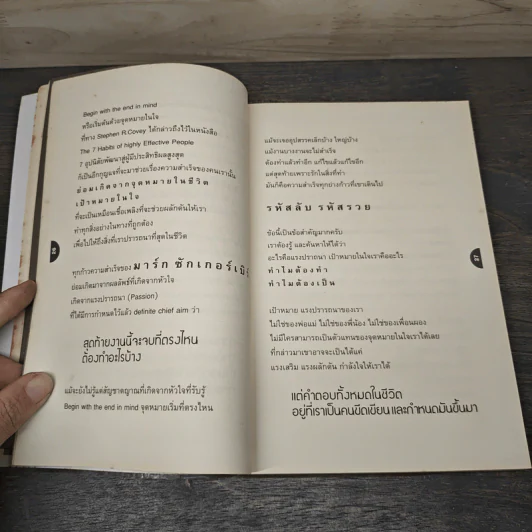 Begin with the end in mind
หรือเริ่มต้นด้วยจุดหมายในใจ
ที่ทาง Stephen R.Covey ได้กล่าวถึงไว้ในหนังสือ
The 7 Habits of highly Effective People
7 อุปนิสัยพัฒนาสู่ผู้มีประสิทธิผลสูงสุด
ก็เป็นอีกกุญแจที่จะมาช่วยเรื่องความสำเร็จของคนเรานั้น
ย่อมเกิดจากจุดหมายในชีวิต
เป้าหมายในใจ
ที่จะเป็นเหมือนเชื้อเพลิงที่จะช่วยผลักดันให้เรา
ทำทุกสิ่งอย่างในทางที่ถูกต้อง
เพื่อไปให้ถึงสิ่งที่เราปรารถนาที่สุดในชีวิต
ทุกก้าวความสำเร็จของ มาร์ก ซักเกอร์เบิ
ย่อมเกิดมาจากผลลัพธ์ที่เกิดจากหัวใจ
เกิดจากแรงปรารถนา (Passion)
ที่ได้มีการกำหนดไว้แล้ว definite chief aim ว่า
สุดท้ายงานนี้จะจบที่ตรงไหน
ต้องทำอะไรบ้าง
แม้จะยังไม่รู้แต่สัญชาตญาณที่เกิดจากหัวใจที่รับรู้
Begin with the end in mind จุดหมายเริ่มที่ตรงไหน
แม้จะเจออุปสรรคเล็กบ้าง ใหญ่บ้าง
แม้งานบางงานจะไม่สำเร็จ
ต้องทำแล้วทำอีก แก้ไขแล้วแก้ไขอีก
แต่สุดท้ายเพราะรักในสิ่งที่ทำ
มันก็คือความสำเร็จทุกย่างก้าวที่เขาเดินไป
รหัสลับ รหัสรวย
ข้อนี้เป็นข้อสำคัญมากครับ
เราต้องรู้ และค้นหาให้ได้ว่า
อะไรคือแรงปรารถนา เป้าหมายในใจเราคืออะไร
ทำไมต้องทำ
ทำไมต้องเป็น
เป้าหมาย แรงปรารถนาของเรา
ไม่ใช่ของพ่อแม่ ไม่ใช่ของพี่น้อง ไม่ใช่ของเพื่อนผอง
ไม่มีใครสามารถเป็นตัวแทนของจุดหมายในใจเราได้เลย
ที่กล่าวมาเขาอาจจะเป็นได้แค่
แรงเสริม แรงผลักดัน กำลังใจให้เราได้
แต่คำตอบทั้งหมดในชีวิต
อยู่ที่เราเป็นคนขีดเขียน และกำหนดมันขึ้นมา